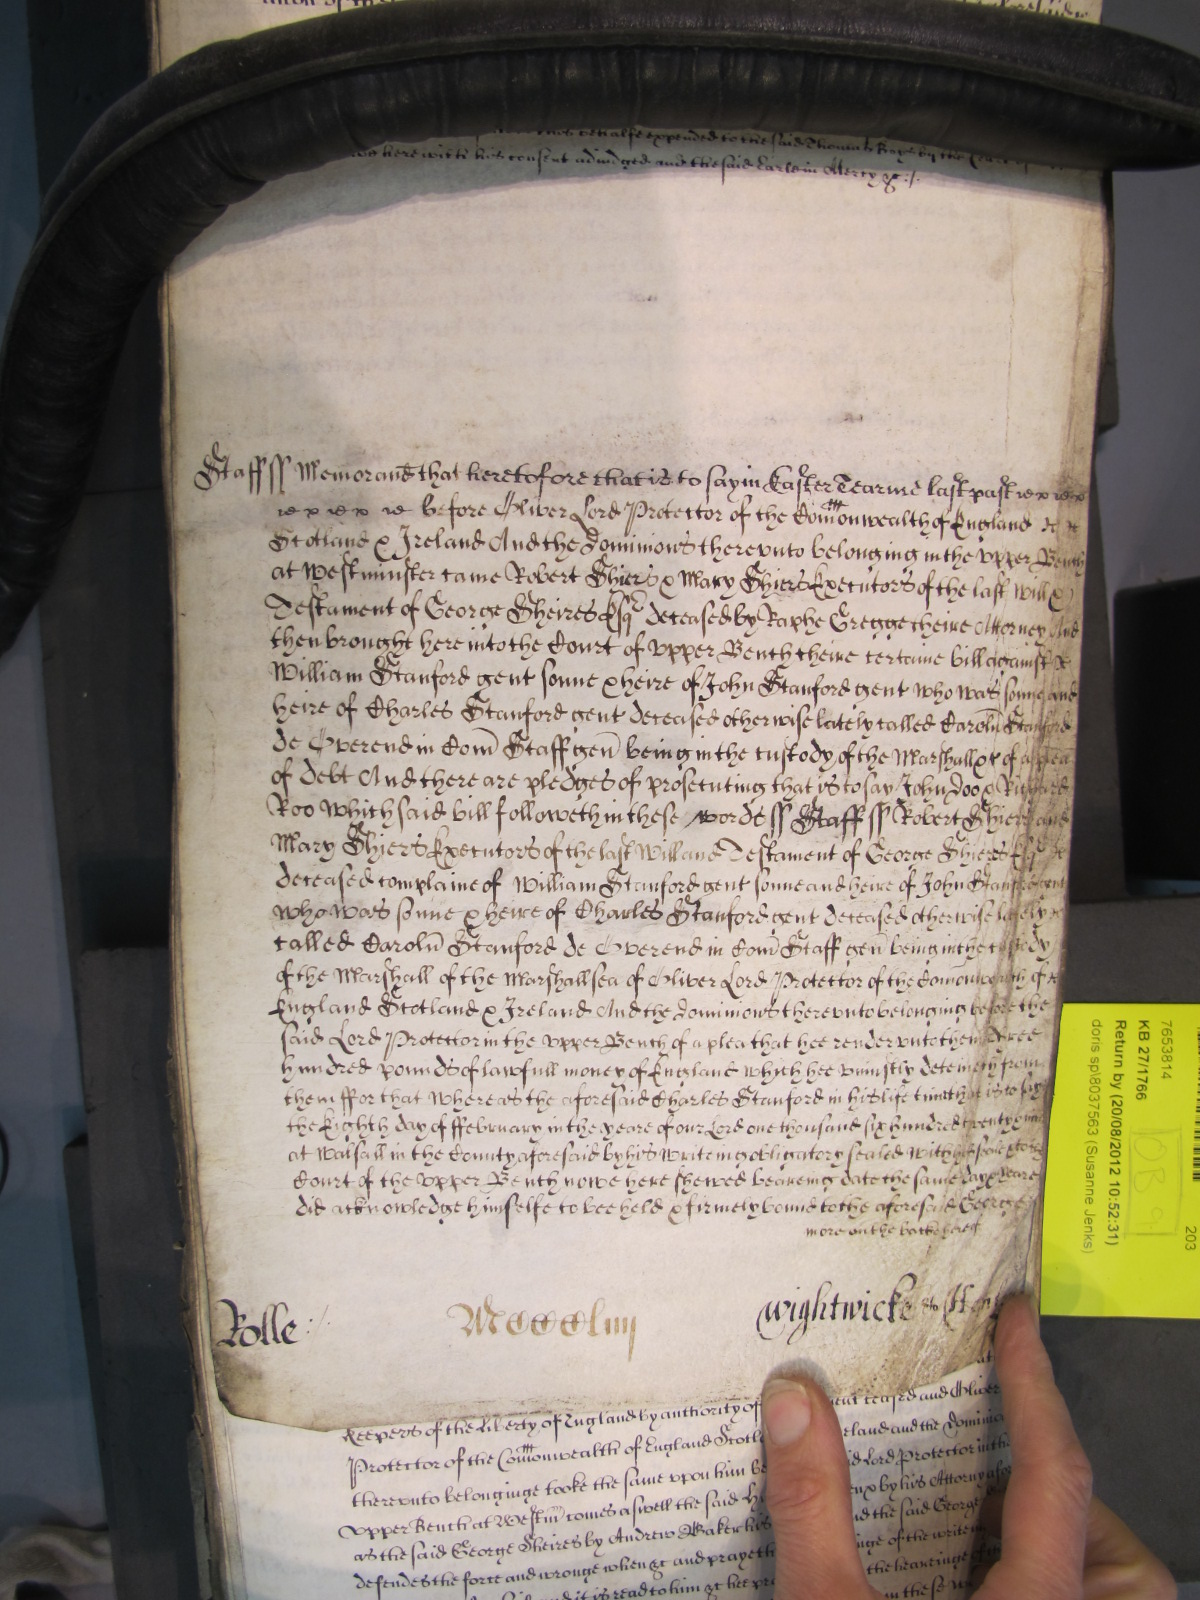 expended to the said Thomas
here with his consent adiudged and the said Earle in Mercy &c ./.
Staff ss Memorand that heretofore that is to say in Easter Tearme last past
before Oliver Lord Protector of the Comonwealth of England
Scotland & Ireland And the Dominions therevnto belonging in the vpper Bench
at Westminster came Robert Shiers & Mary Shiers Executors of the last will &
Testament of George Sheires Esqr deceased by Raphe Gregge theire Attorney And
then brought here into the Court of vpper Bench theire certaine bill against
William Stanford gent sonne & heire of John Stanford gent who was sonne and
heire of Charles Stanford gent deceased otherwise lately called Carolu Stanford
de Overend in Com Staff gen being in the custody of the Marshall &c of a plea
of debt And there are pledges of prosecuting that is to say John Doo & Richard
Roo which said bill followeth in these wordes ss Staff ss Robert Shiers and
Mary Shiers Executors of the last Will and Testament of George Shieres Esqr
deceased complaine of William Stanford gent sonne and heire of John Stanford gent
who was sonne & heire of Charles Stanford gent deceased otherwise lately
called Carolu Stanford de Overend in Com Staff gen being in the custody
of the Marshall of the Marshallsea of Oliver Lord Protector of the Comonwealth of
England Scotland & Ireland And the Dominions therevnto belonging before the
said Lord Protector in the vpper Bench of a plea that hee render vnto them three
hundred pounds of lawfull money of England which hee vniustly deteineth from
them ffor that Whereas the aforesaid Charles Stanford in his life time that is to say
the Eighth day of ffebruary in the yeare of our Lord one thousand six hundred twenty
at Walsall in the County aforesaid by his writeing obligatory sealed with
Court of the vpper Bench nowe here shewed beareing date the same day & yeare
did acknowledge himselfe to bee held & firmely bound to the aforesaid George
more on the backe hereof
Rolle
MCCCCliiij
Wightwicke
at
Keepers of the liberty of England by authority of and Oliver
Protector of the Comonwealth of England Scotl and the Dominio
therevnto belonginge tooke the same vpon him Lord Protector in the
vpper Bench at Westm comes aswell the said by his Attorny
as the said George Sheires by Andrew Baker his the said George
defendes the force and wronge when &c and prayeth of the write
it is read to him &c hee the heareinge of
in these
7653814
KB 27/1766
Return by (20/08/2012 10:52:31)
doris sp\8037563 (Susanne Jenks)
203